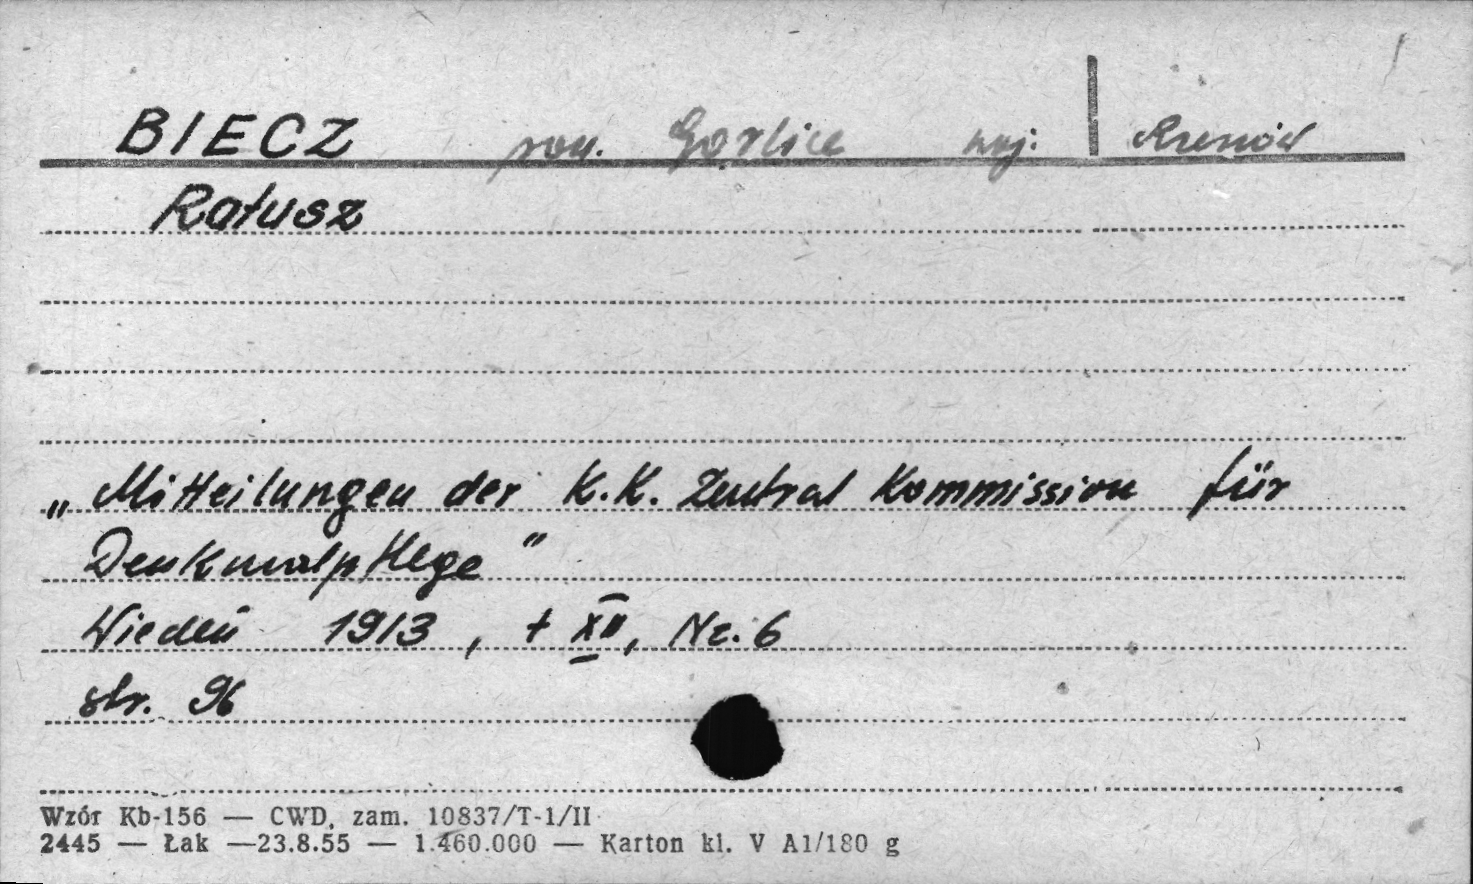 BIECZ pow. Gorlice woj. Rzeszów
Ratusz
„Mitteilungen der K.K. Zentral Kommission für
Denkmalpflege"
Wiedeń 1913, t XII, Nr. 6
str. 96
Wzór Kb-156 — CWD, zam. 10837/T-1/II
2445 — Łak —23.8.55 — 1.460.000 — Karton kl. V A1/180 g